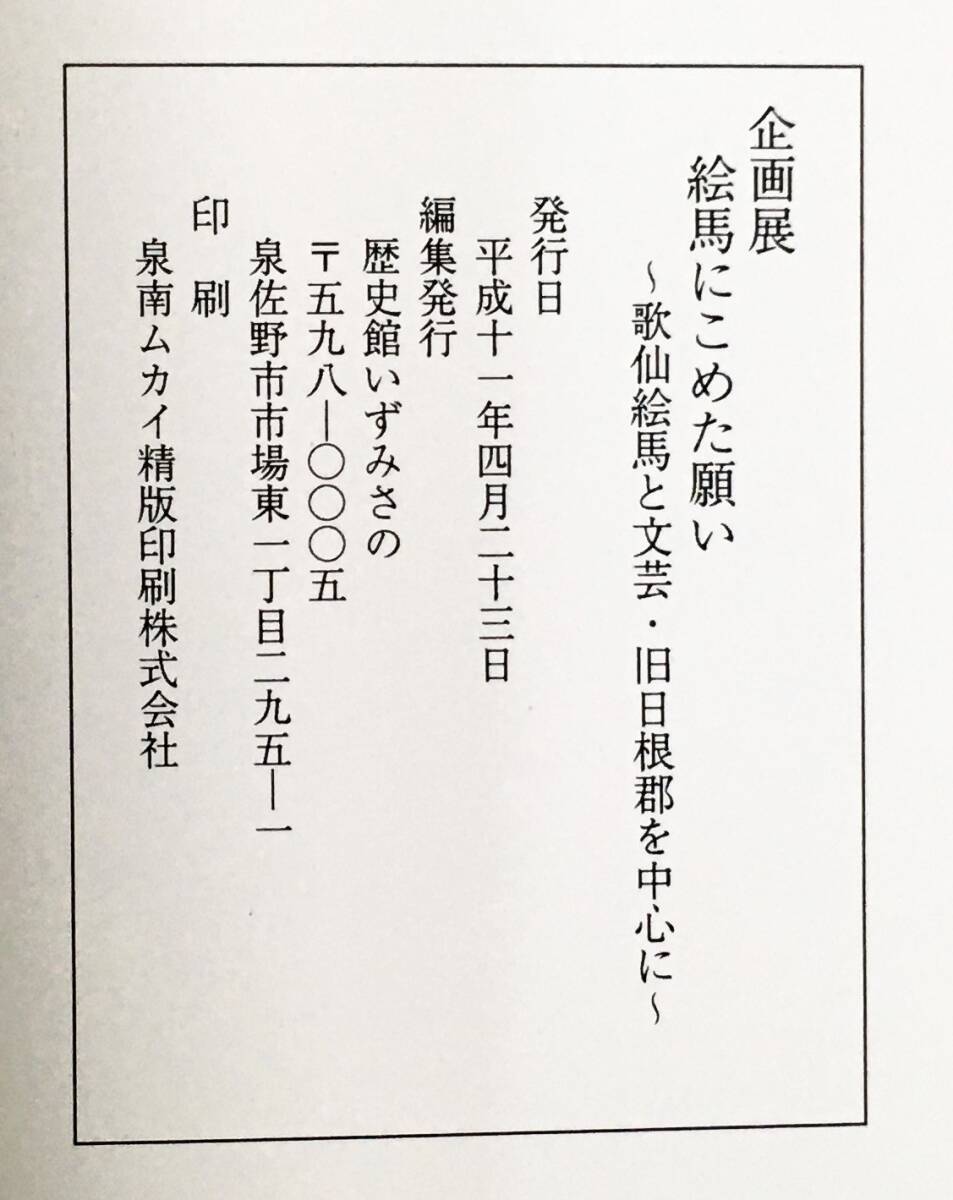 企画展
絵馬にこめた願い
～歌仙絵馬と文芸・旧日根郡を中心に～
発行日
平成十一年四月二十三日
編集発行
歴史館いずみさの
〒五九八―〇〇〇五
泉佐野市市場東一丁目二九五―一
印刷
泉南ムカイ精版印刷株式会社